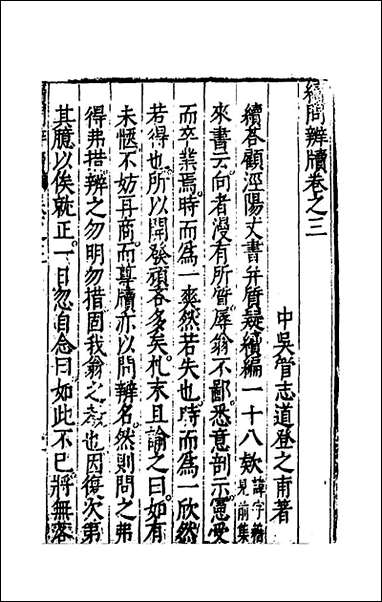 續問辨牘卷之三
中吳管志道登之甫著
續荅顧涇陽丈書并質疑續編一十八欵諱字籍見前集
來書云向者漫有所質辱翁不鄙悉意剖示憲受
而卒業焉時而爲一爽然若失也時而爲一欣然
若得也所以開發頑吝多矣札末且諭之曰如有
未愜不妨再商而尊牘亦以問辨名然則問之弗
得弗措辨之勿明勿措固我翁之教也因復次第
其臆以俟就正一日忽自念曰如此不已將無落